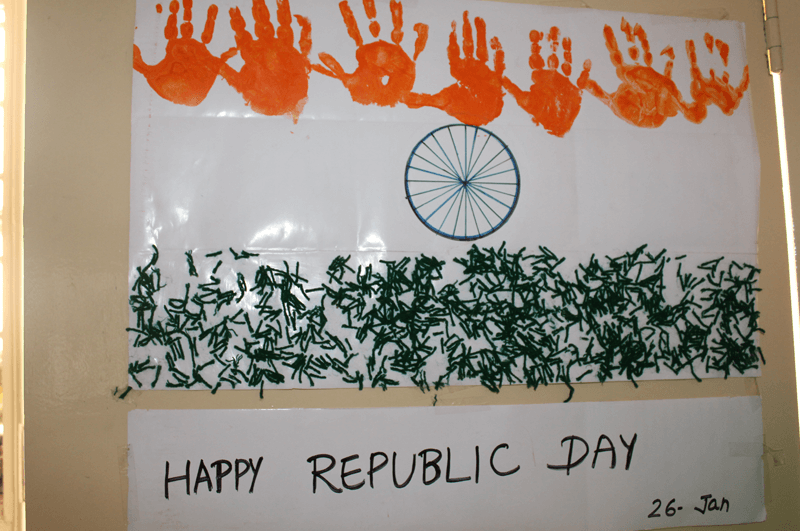 HAPPY REPUBLIC DAY
26- Jan